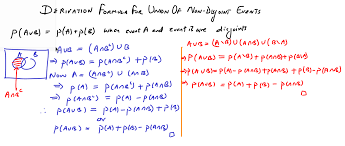 DERIVATION FORMULA FOR UNION OF NON-DISJOINT EVENTS
P(A∪B) = P(A)+P(B) when event A and event B are disjoint
A B
A∩Bᶜ
A∪B = (A∩Bᶜ)∪B
⇒ P(A∪B) = P(A∩Bᶜ) + P(B)
Now A = (A∩Bᶜ) ∪ (A∩B)
⇒ P(A) = P(A∩Bᶜ) + P(A∩B)
⇒ P(A∩Bᶜ) = P(A) - P(A∩B)
∴ P(A∪B) = P(A) - P(A∩B) + P(B)
or
P(A∪B) = P(A) + P(B) - P(A∩B)
A∪B = (A\B)∪(A∩B)∪(B\A)
⇒ P(A∪B) = P(A\B)+P(A∩B)+P(B\A)
⇒ P(A∪B) = P(A) - P(A∩B)+P(A∩B)+P(B)-P(A∩B)
⇒ P(A∪B) = P(A) + P(B) - P(A∩B)